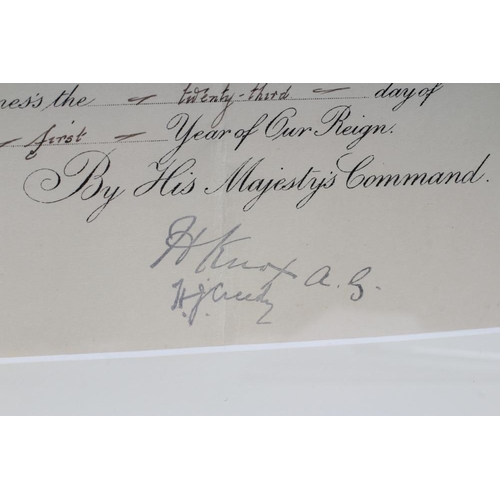 ness the twenty-third day of
first Year of Our Reign.
By His Majesty's Command.
H Knox A.G.
H.J. Creedy